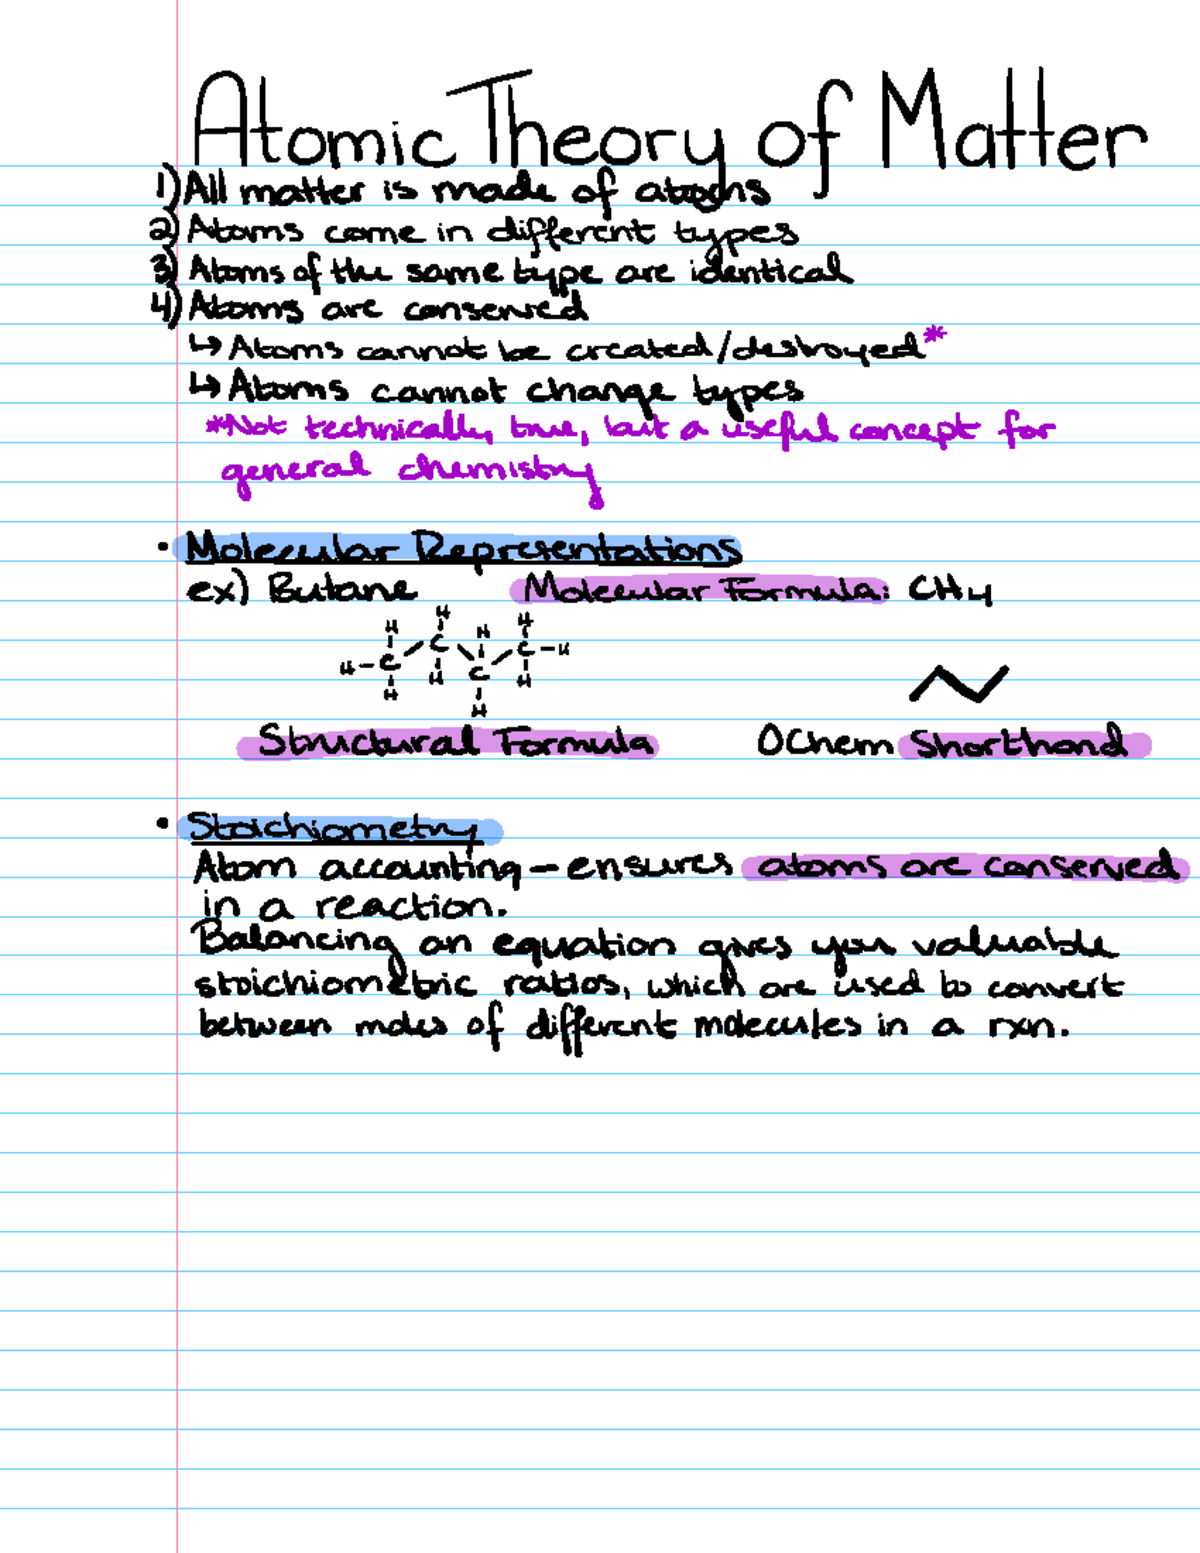 Atomic Theory of Matter
1) All matter is made of atoms
2) Atoms come in different types
3) Atoms of the same type are identical
4) Atoms are conserved
↳ Atoms cannot be created/destroyed*
↳ Atoms cannot change types
*Not technically true, but a useful concept for
general chemistry
• Molecular Representations
ex) Butane Molecular Formula: CH4
H H H H
H-C C C C-H
H H H H
Structural Formula OChem Shorthand
• Stoichiometry
Atom accounting — ensures atoms are conserved
in a reaction.
Balancing an equation gives you valuable
stoichiometric ratios, which are used to convert
between moles of different molecules in a rxn.